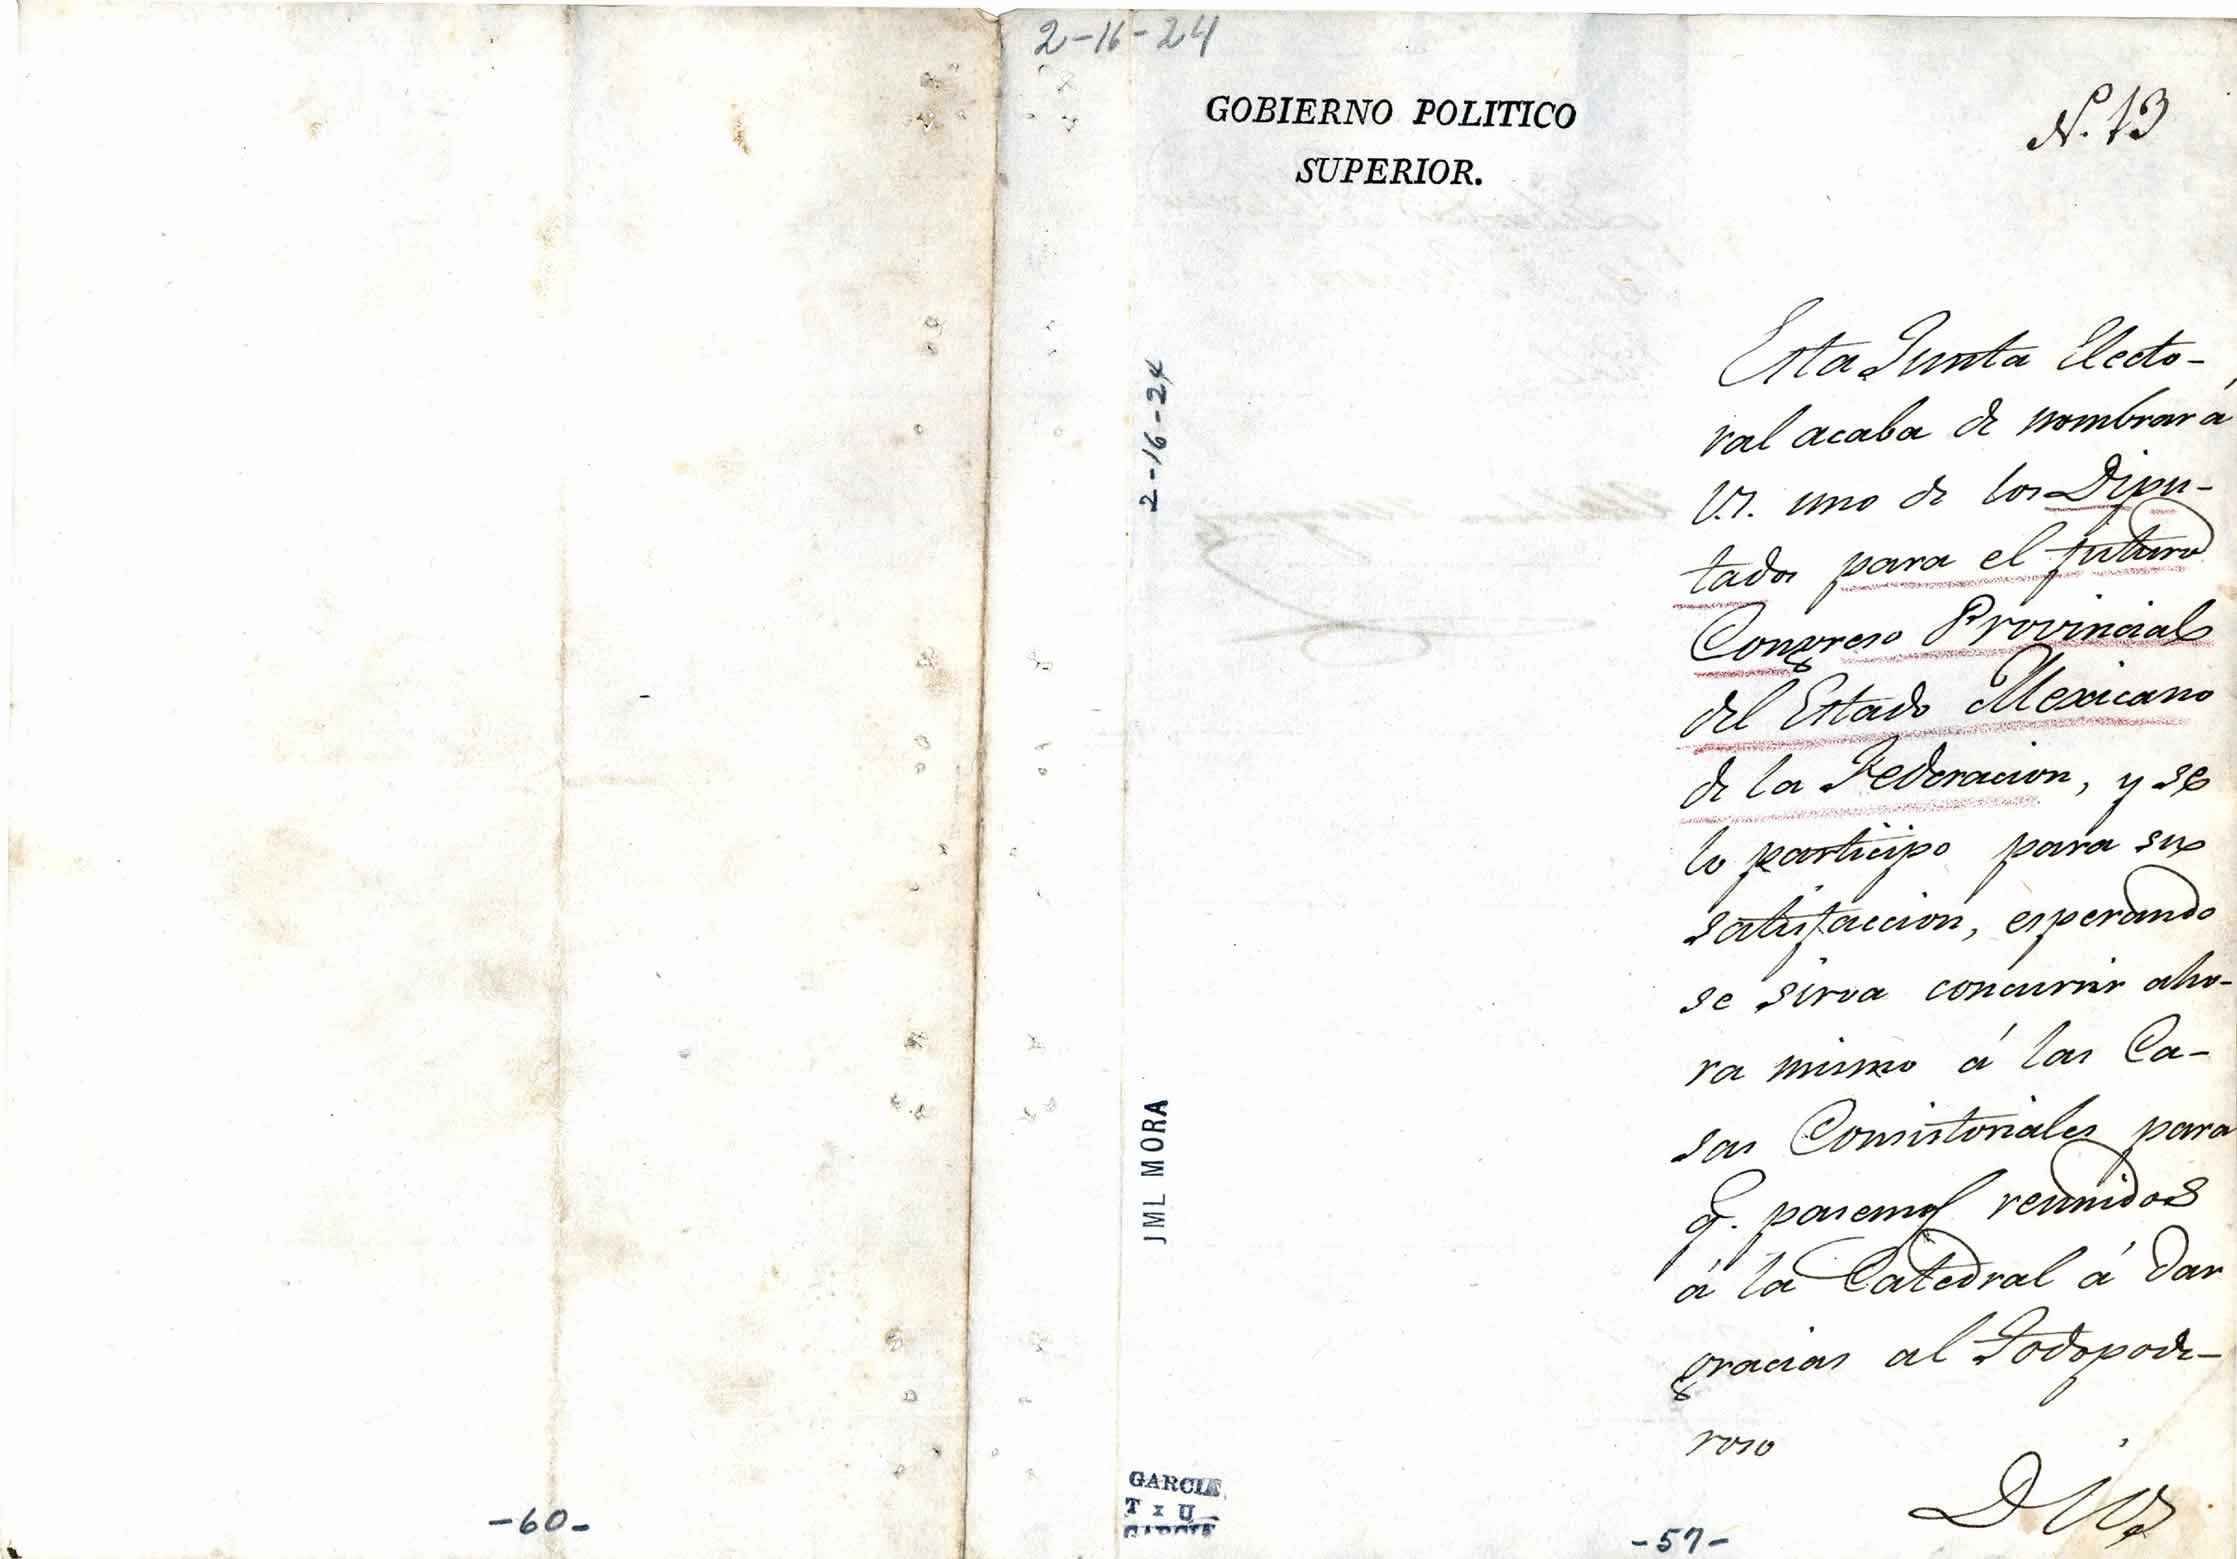 2-16-24
GOBIERNO POLITICO
SUPERIOR.
N. 13
Esta Junta Electo-
ral acaba de nombrar á
V.S. uno de los Dipu-
tados para el futuro
Congreso Provincial
del Estado Mexicano
de la Federacion, y se
lo participo para su
satisfaccion, esperando
se sirva concurrir aho-
ra mismo á las Ca-
sas Consistoriales para
q. pasemos reunidos
á la Catedral á dar
gracias al Todopode-
roso
Dios
2-16-24
JML MORA
GARCIA
T x U
GARCIA
-60-
-57-